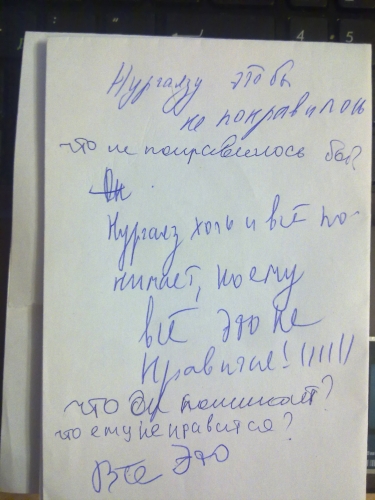 Нургазу это бы
не понравилось
что не понравилось бы?
Он
Нургаз хоть и всё по-
нимает, но ему
всё это не
нравится! !!!!!!
что он понимает?
что ему не нравится?
Всё это